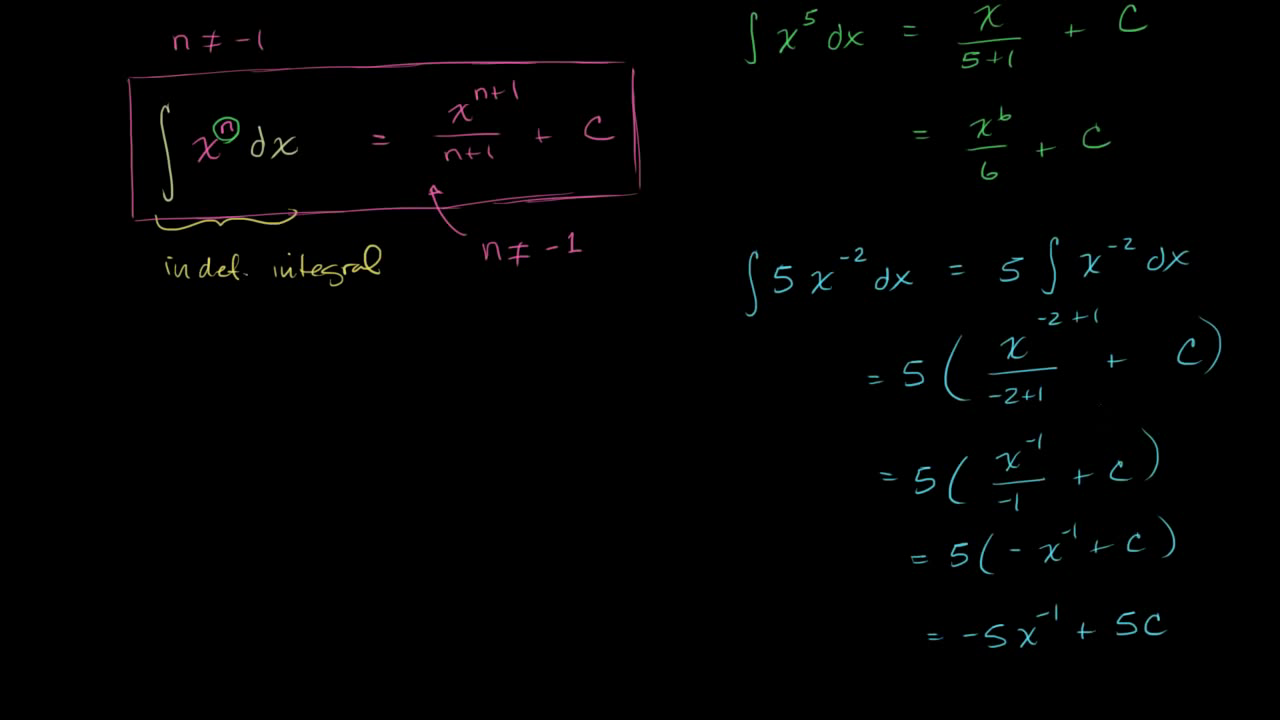 n ≠ -1
∫ xⁿ dx = xⁿ⁺¹/(n+1) + C
n ≠ -1
indef. integral
∫ x⁵ dx = x/(5+1) + C
= x⁶/6 + C
∫ 5 x⁻² dx = 5 ∫ x⁻² dx
= 5 ( x⁻²⁺¹/(-2+1) + C )
= 5 ( x⁻¹/-1 + C )
= 5 ( - x⁻¹ + C )
= -5x⁻¹ + 5C